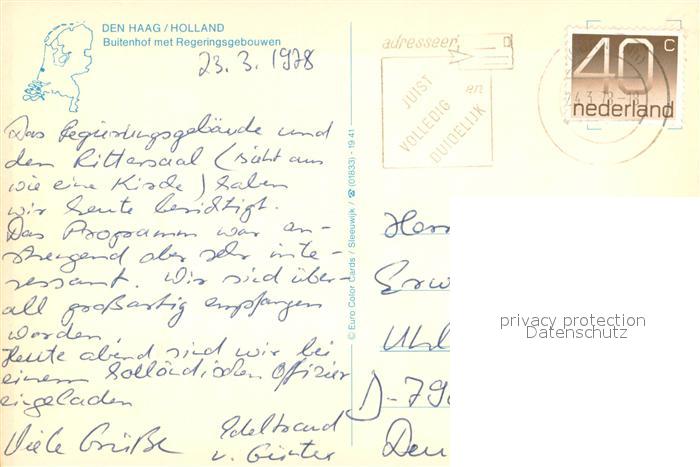 DEN HAAG / HOLLAND
Buitenhof met Regeringsgebouwen
23.3.1978
Das Regierungsgebäude und
den Rittersaal (sieht aus
wie eine Kirche) haben
wir heute besichtigt.
Das Programm war an-
strengend aber sehr inte-
ressant. Wir sind über-
all großartig empfangen
worden.
Heute abend sind wir bei
einem holländischen Offizier
eingeladen
Viele Grüße Edeltraud
u. Günter
© Euro Color Cards / Sleeuwijk / ☎ (01833) - 19 41
adresseer
JUIST
VOLLEDIG en
DUIDELIJK
40 c
nederland
Herr
Erw
Uhl
D-79
privacy protection
Datenschutz